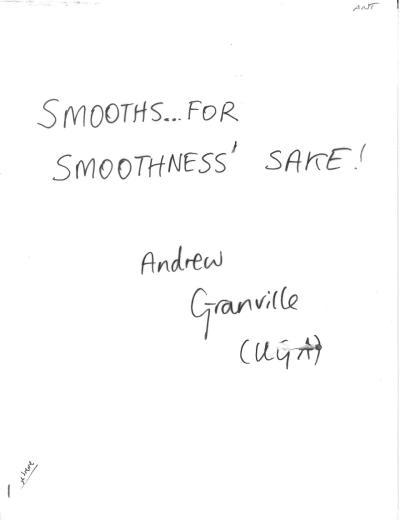 ANT
SMOOTHS...FOR
SMOOTHNESS' SAKE!
Andrew
Granville
(UGA)